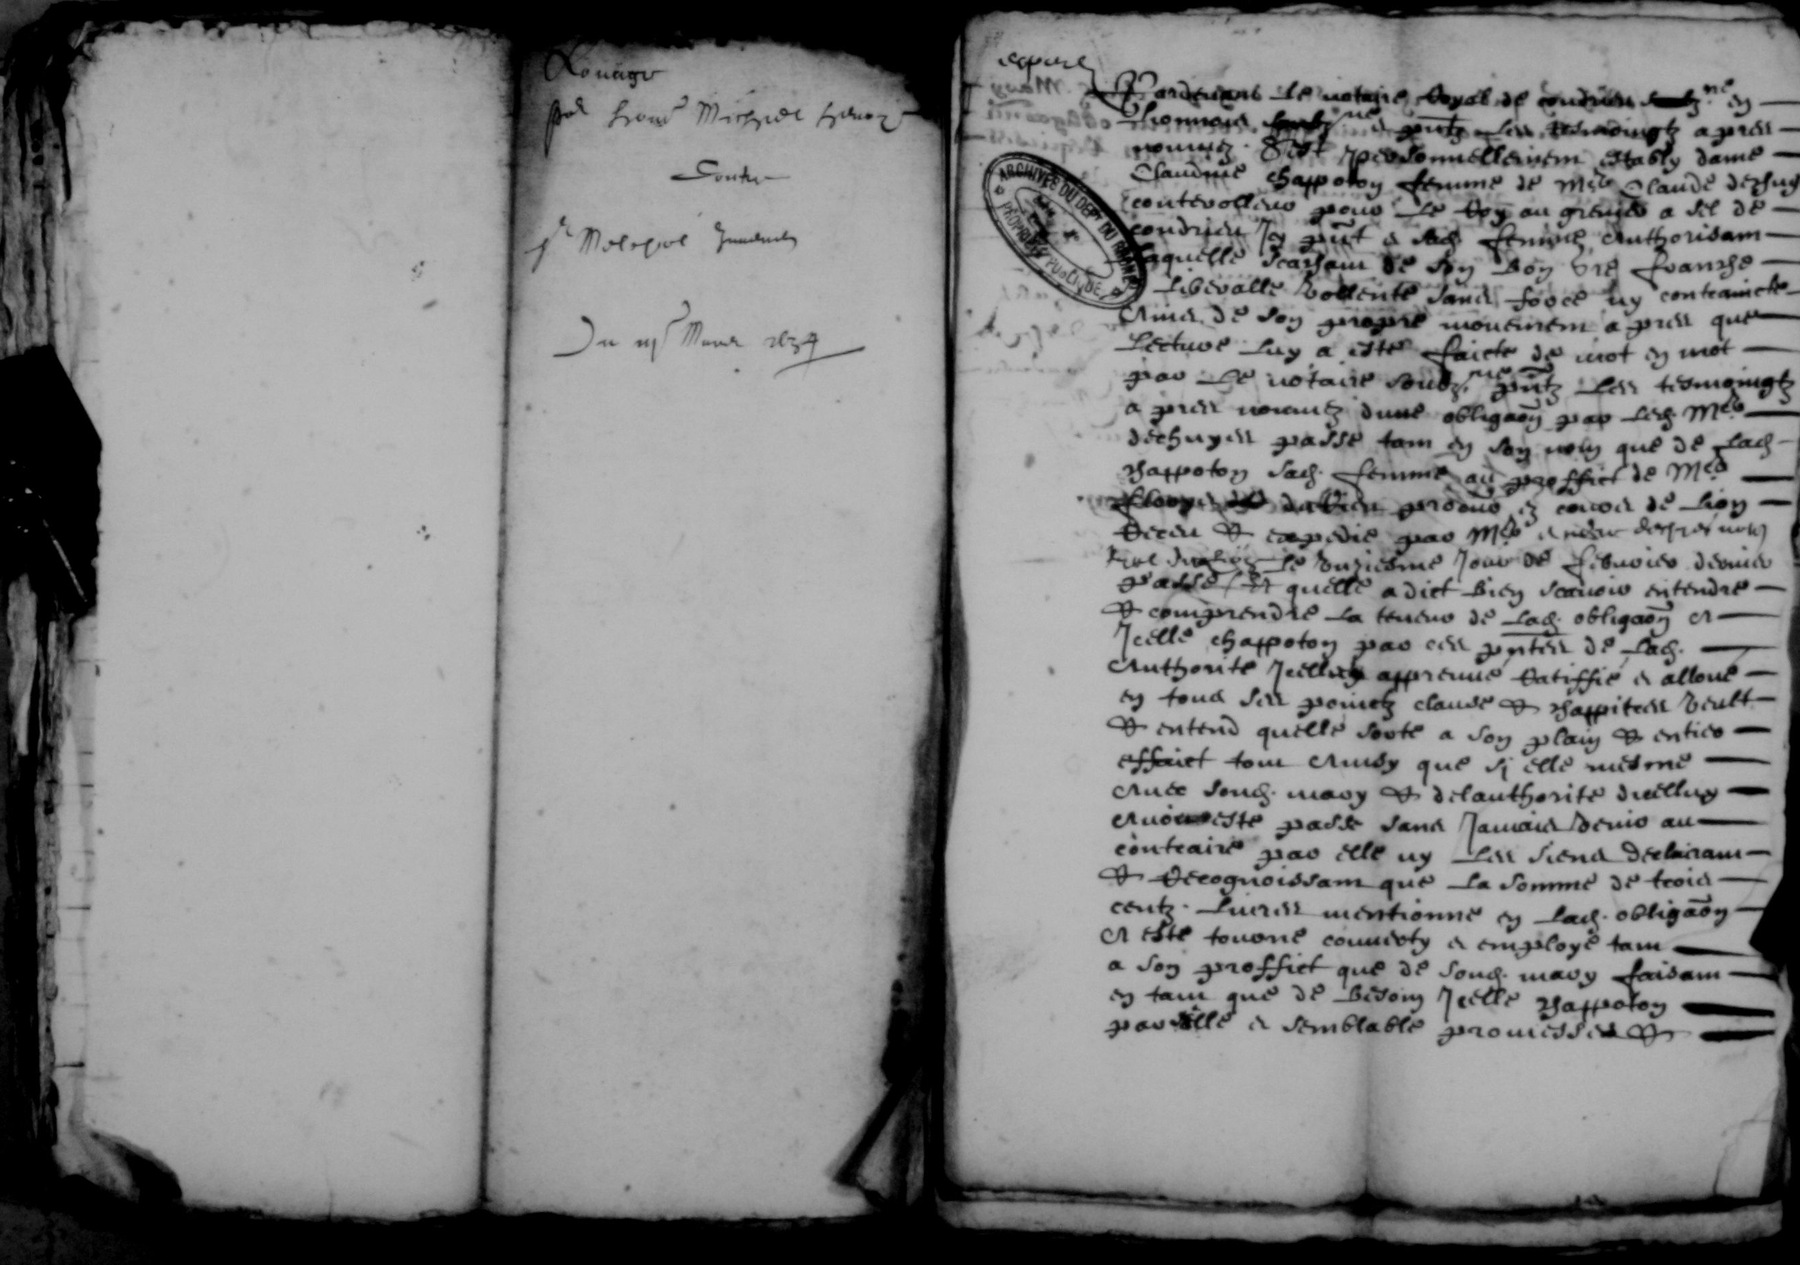 Louage
pour
Michel
Contre
Du Mars 1634
expedie
Pardevant le notaire Royal de condrieu soubz.ne en
Lionnois et pntz les tesmoingtz apres
nommez. Sest personnellement estably dame
Claudine chappoton femme de Me Claude
contrerolleur pour le Roy au grenier a sel de
condrieu Jcy pnt et lad. femme authorisant
Laquelle scachant de son bon gre franche
Liberalle vollente sans force ny contraincte
Ains de son propre mouvement apres que
Lecture luy a este faicte de mot en mot
par le notaire soubz.ne pntz les tesmoingtz
apres nommez dune obligaon par led. Me
passe tant en son nom que de lad.
chappoton sad. femme au proffict de Me
procureur ez cours de Lion
Receu & expedie par Me
le unziesme Jour de febvrier dernier
passe Et quelle a dict bien scavoir entendre
& comprendre la teneur de lad. obligaon et
Jcelle chappoton par ces pntes de lad.
authorite Jcelle appreuve Ratiffie et alloue
en tous ses poinctz clause & chappitres Veult
& entend quelle sorte a son plain & entier
effaict tout ainsy que si elle mesme
avec sond. mary & delauthorite dicelluy
avoit este passe sans Jamais venir au
contraire par elle ny les siens declairant
& Recognoissant que la somme de trois
centz. Livres mentionne en lad. obligaon
a este tourne converty et employe tant
a son proffict que de sond. mary faisant
en tant que de besoin Jcelle chappoton
pareille et semblable promesses &
ARCHIVES DU DEPT DU RHONE
PROPRIETE PUBLIQUE